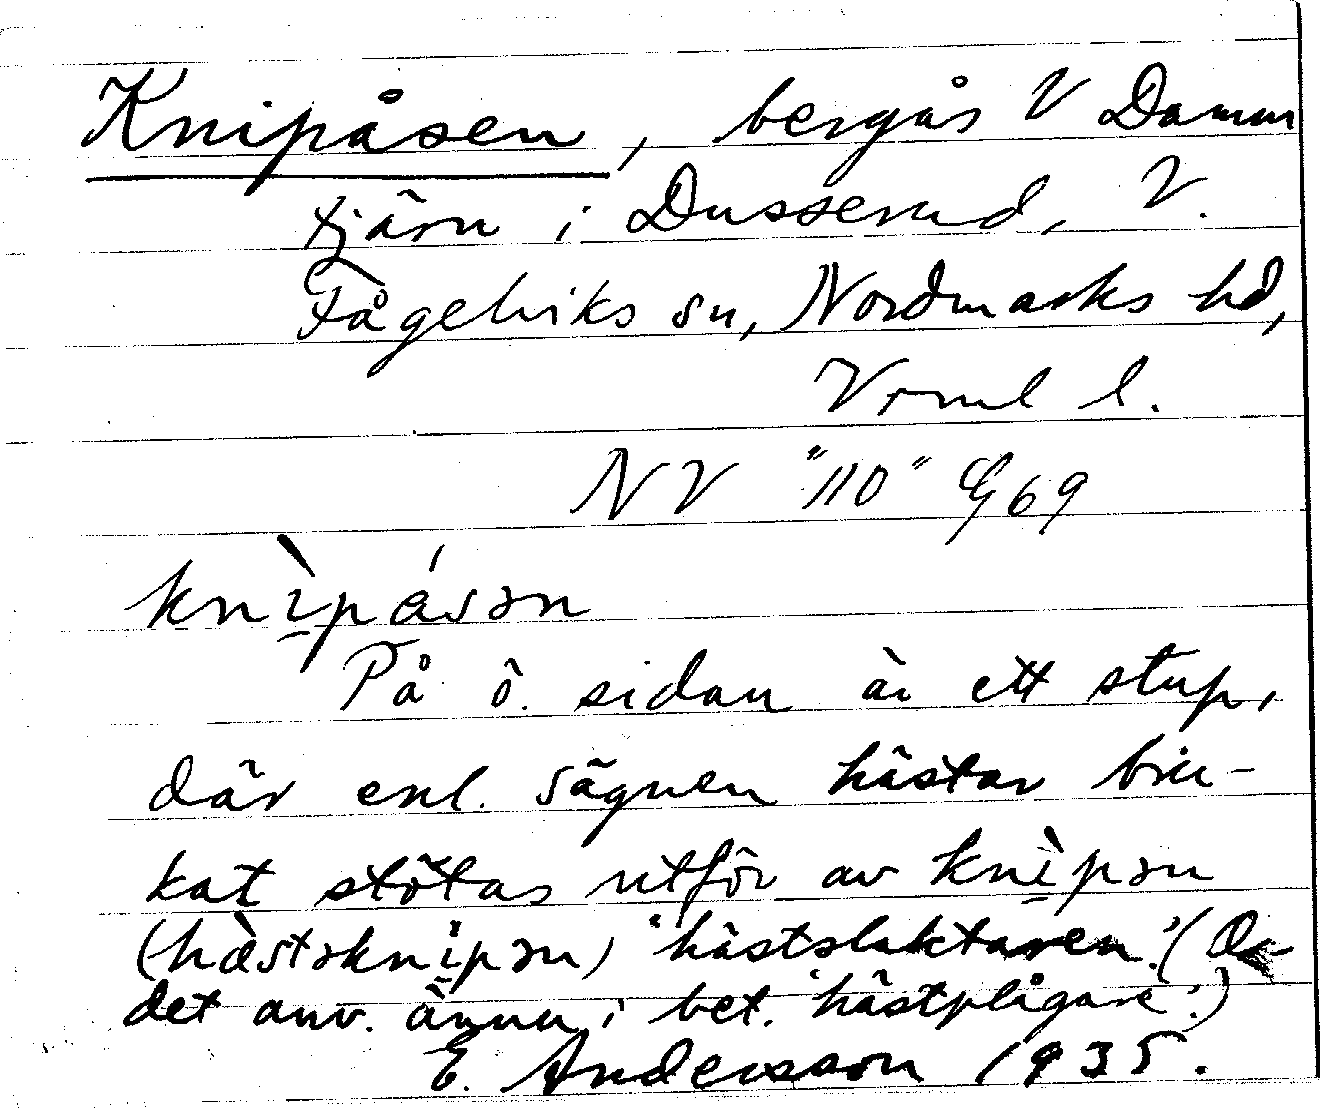 Knipåsen, bergås V Damm
tjärn i Dusserud, V.
Fågelviks sn, Nordmarks hd,
Vrml l.
NV "110" Eg 69
knìpásən
På ö. sidan är ett stup,
där enl. sägnen hästar bru-
kat stötas utför av knìpən
(hæ̀stəknìpən) 'hästslaktaren'. (
det anv. ännu i bet. 'hästplågare'.)
E. Andersson 1935.